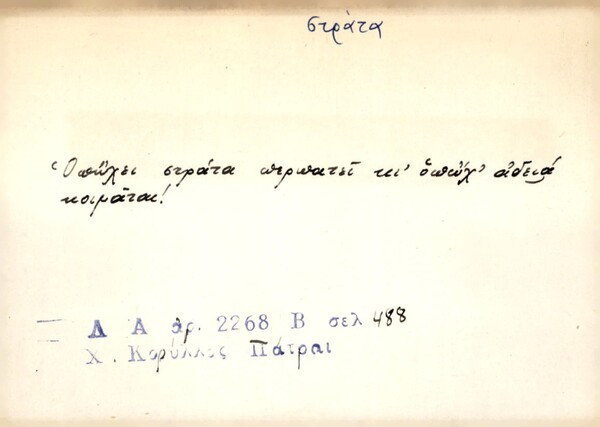 στράτα
Ὁπὤχει στράτα περπατεῖ κι' ὅπὤχ' ἄδειά
κοιμᾶται!
Λ Α ἀρ. 2268 Β σελ 488
Χ. Κορύλλος Πάτραι